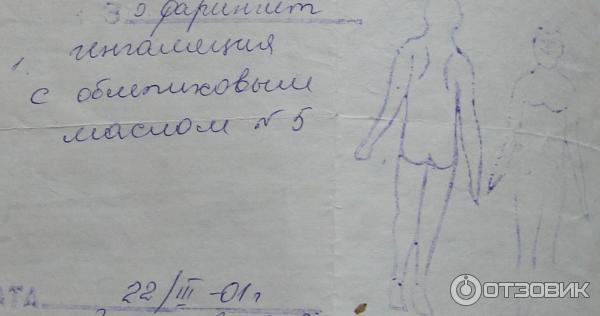 э фарингит
1. ингаляция
с облепиховым
маслом №5
АТА 22/III-01г
ОТЗОВИК